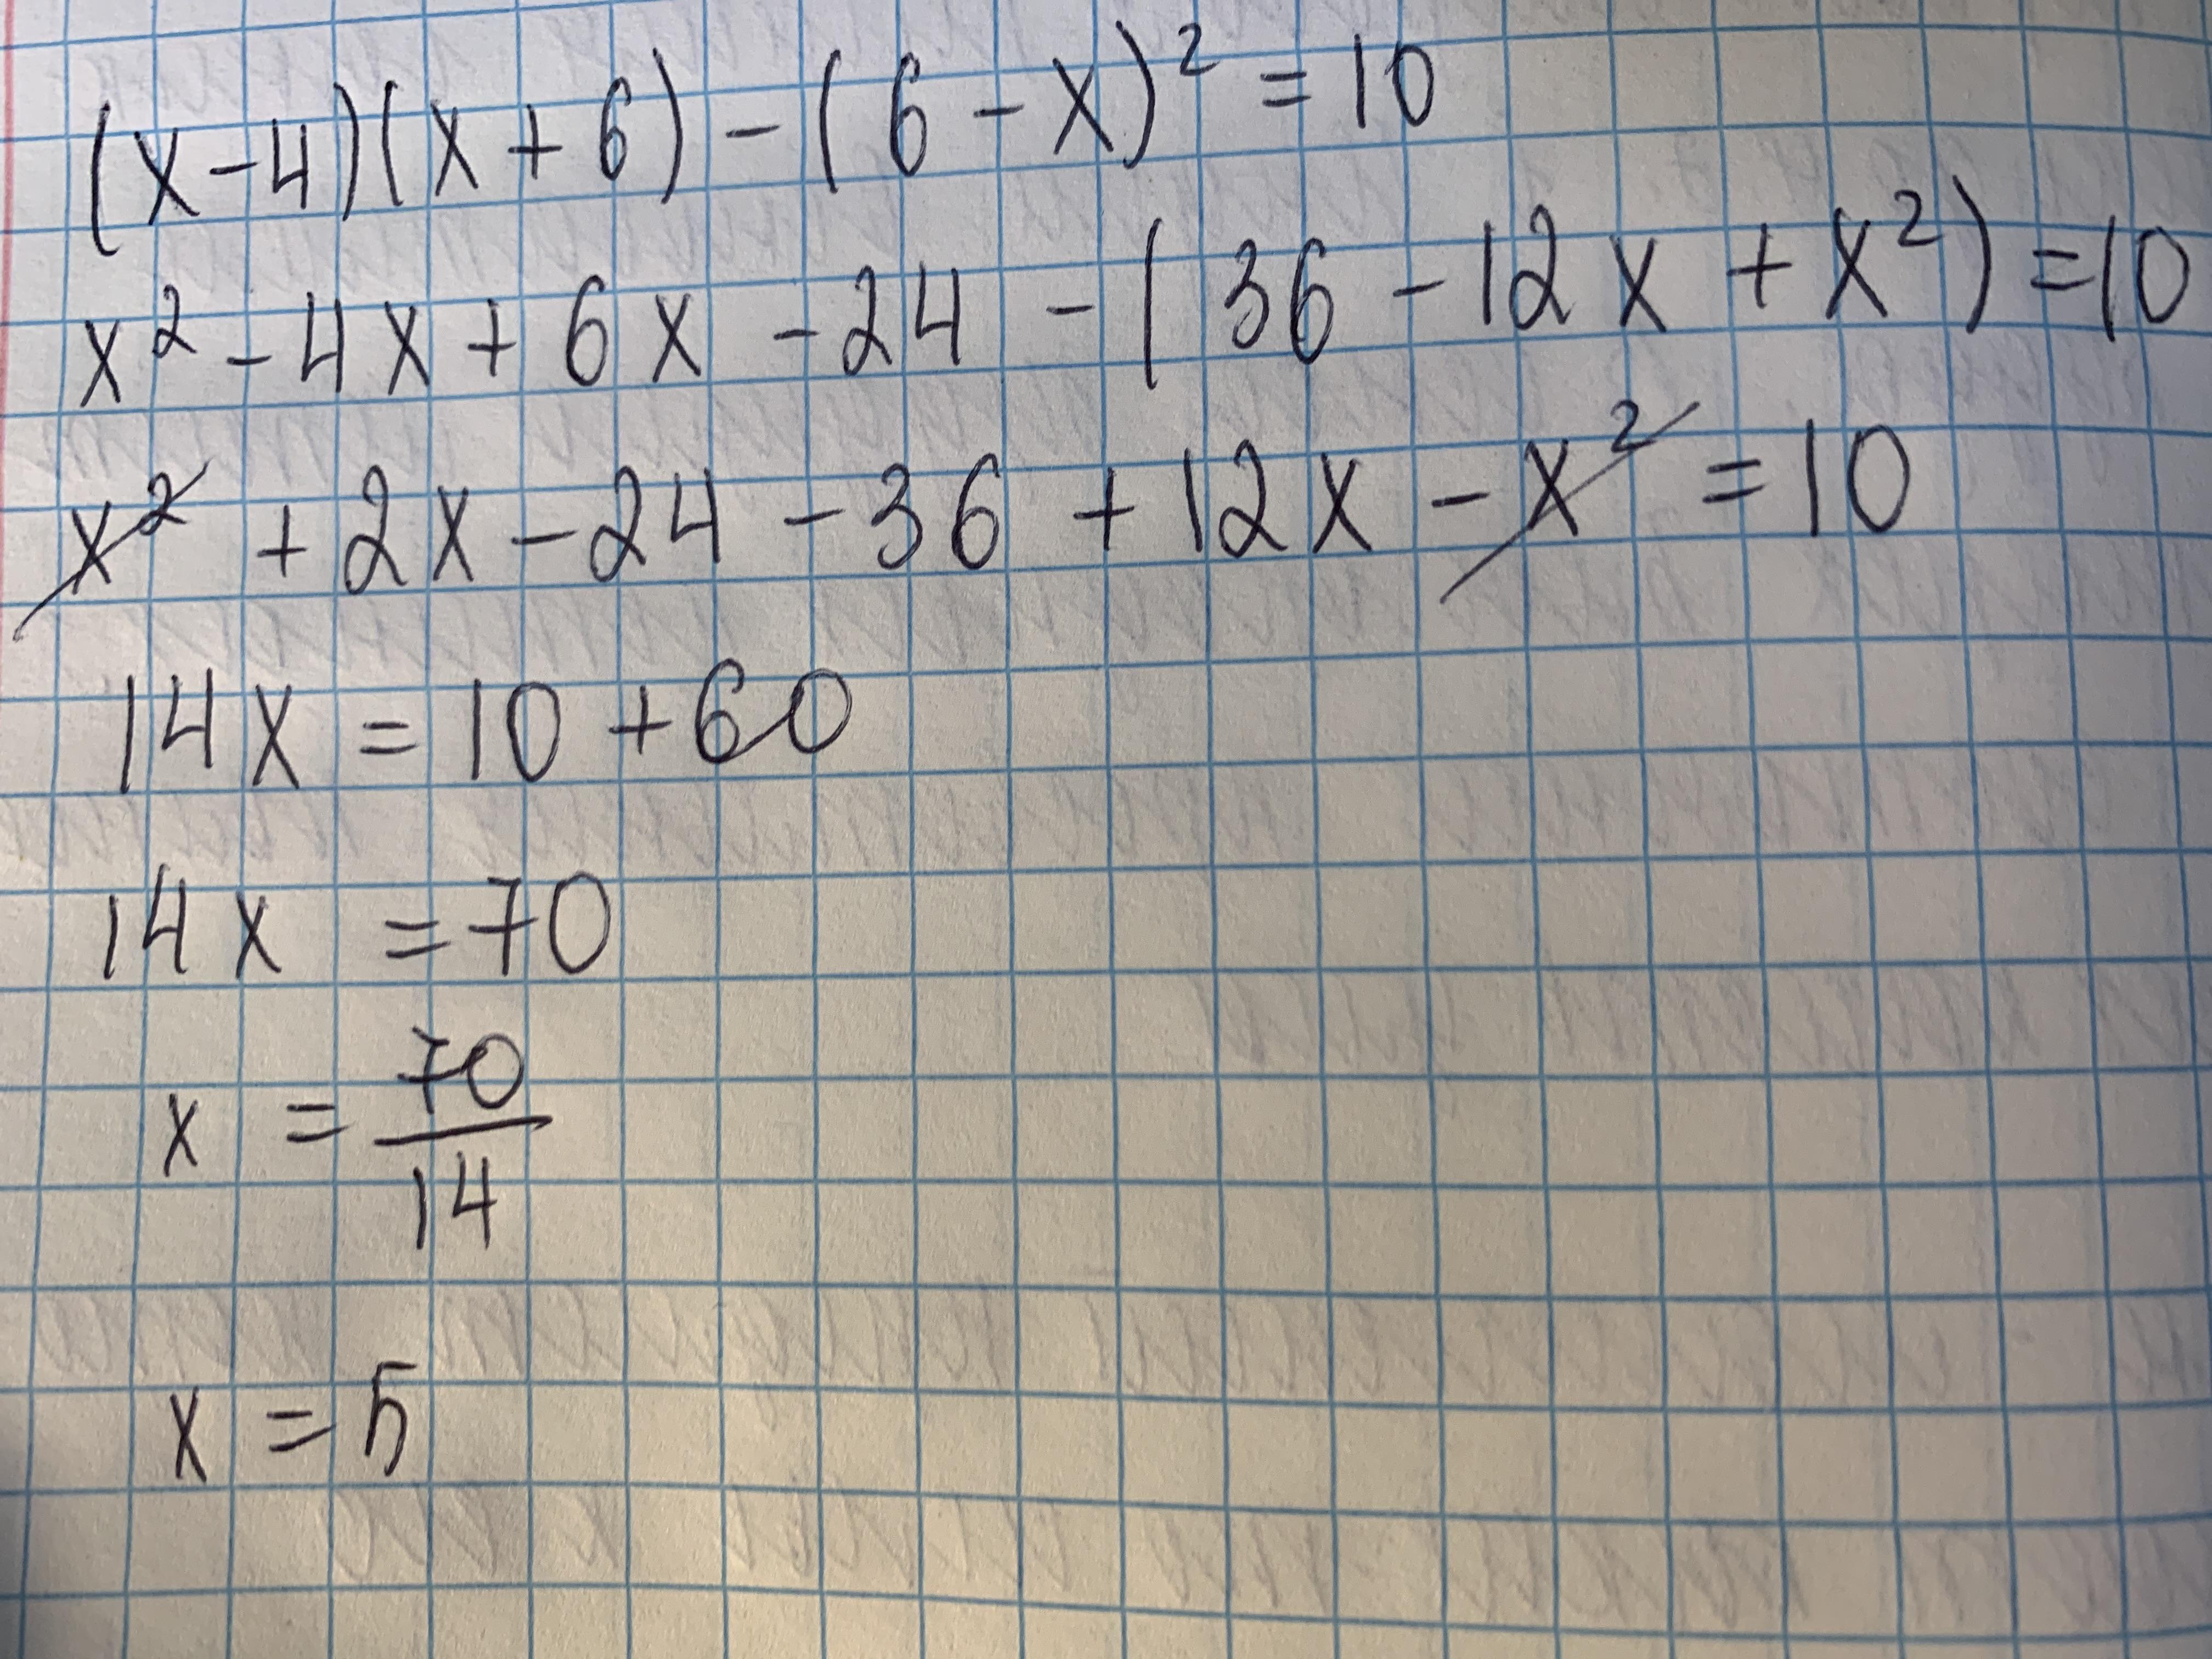 (x-4)(x+6)-(6-x)²=10
x²-4x+6x-24-(36-12x+x²)=10
x²+2x-24-36+12x-x²=10
14x=10+60
14x=70
x=70/14
x=5